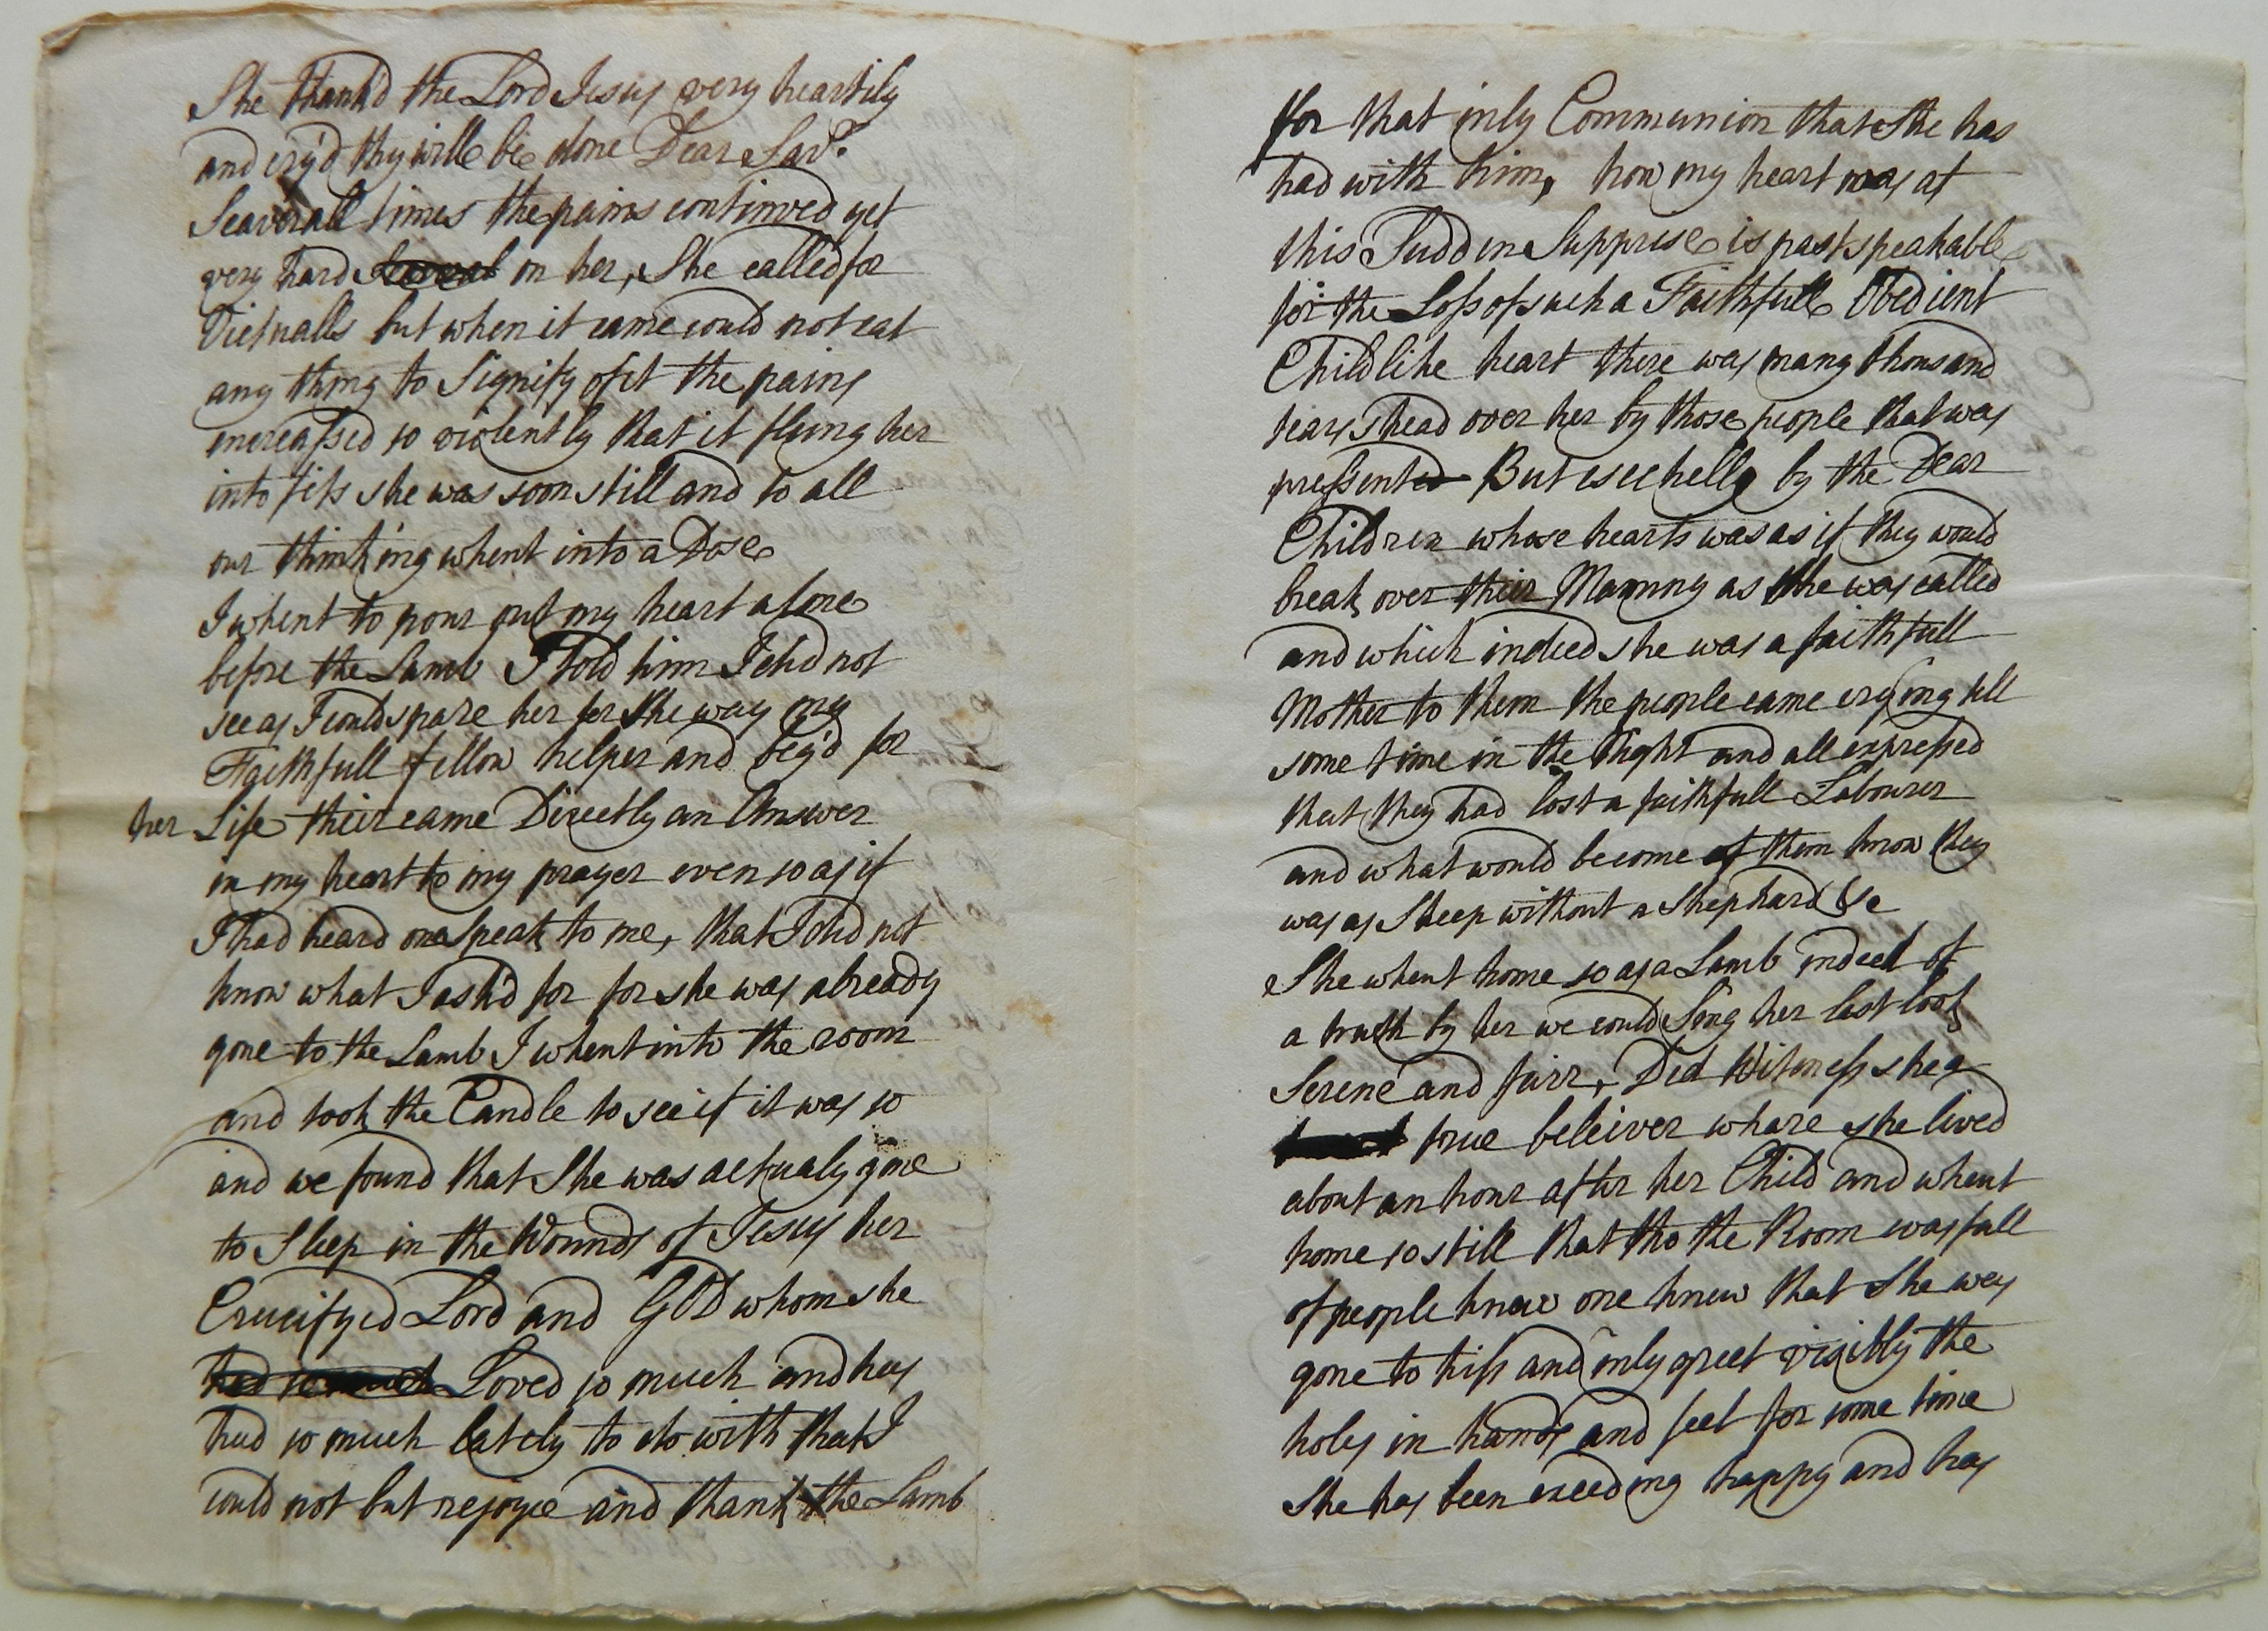 She thank'd the Lord Jesus very heartily
and cry'd thy will be done Dear Savr.
Seaverall times the pains continued yet
very hard on her, She called for
Victualls but when it came could not eat
any thing to Signify of it the pains
increassed so violently that it flung her
into fits she was soon still and to all
our thinking whent into a Dose
I whent to pour out my heart alone
before the Lamb I told him I did not
see as I could spare her for She was my
Faithfull fellow helper and beg'd for
her Life their came Directly an Answer
in my heart to my prayer even so as if
I had heard one Speak to me, that I did not
know what I ask'd for for she was already
gone to the Lamb I whent into the room
and took the Candle to see if it was so
and we found that She was actualy gone
to Sleep in the Wounds of Jesus her
Crucifyed Lord and GOD whom she
had so much Loved so much and has
had so much lately to do with that I
could not but rejoyce and thank the Lamb
for that inly Communion that She has
had with him, how my heart was at
this Sudden Supprise is past speakable
for the Loss of such a Faithfull Obedient
Childlike heart there was many thousand
tears shead over her by those people that was
pressent But especially by the Dear
Children whose hearts was as if they would
break over their Mammy as She was called
and which indeed she was a faithfull
Mother to them the people came crying till
some time in the Night and all expressed
that they had lost a faithfull Labourer
and what would become of them know they
was as Sheep without a Shephard &c
She whent home so as a Lamb indeed of
a truth by her we could Sing her last look
Serene and fair, Did Witness she a
true beleiver whare she lived
about an hour after her Child and whent
home so still that tho the Room was full
of people know one knew that She was
gone to kiss and inly greet visibly the
holes in hands and feet for some time
She has been exeeding happy and has